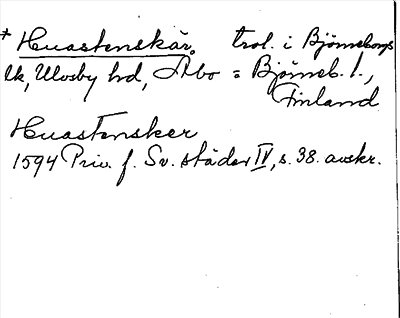 * Huastenskär. trol. i Björneborgs
lk, Ulvsby hd, Åbo = Björneb. l.,
Finland
Huastensker
1594 Priv. f. Sv. städer IV, s. 38. avskr.